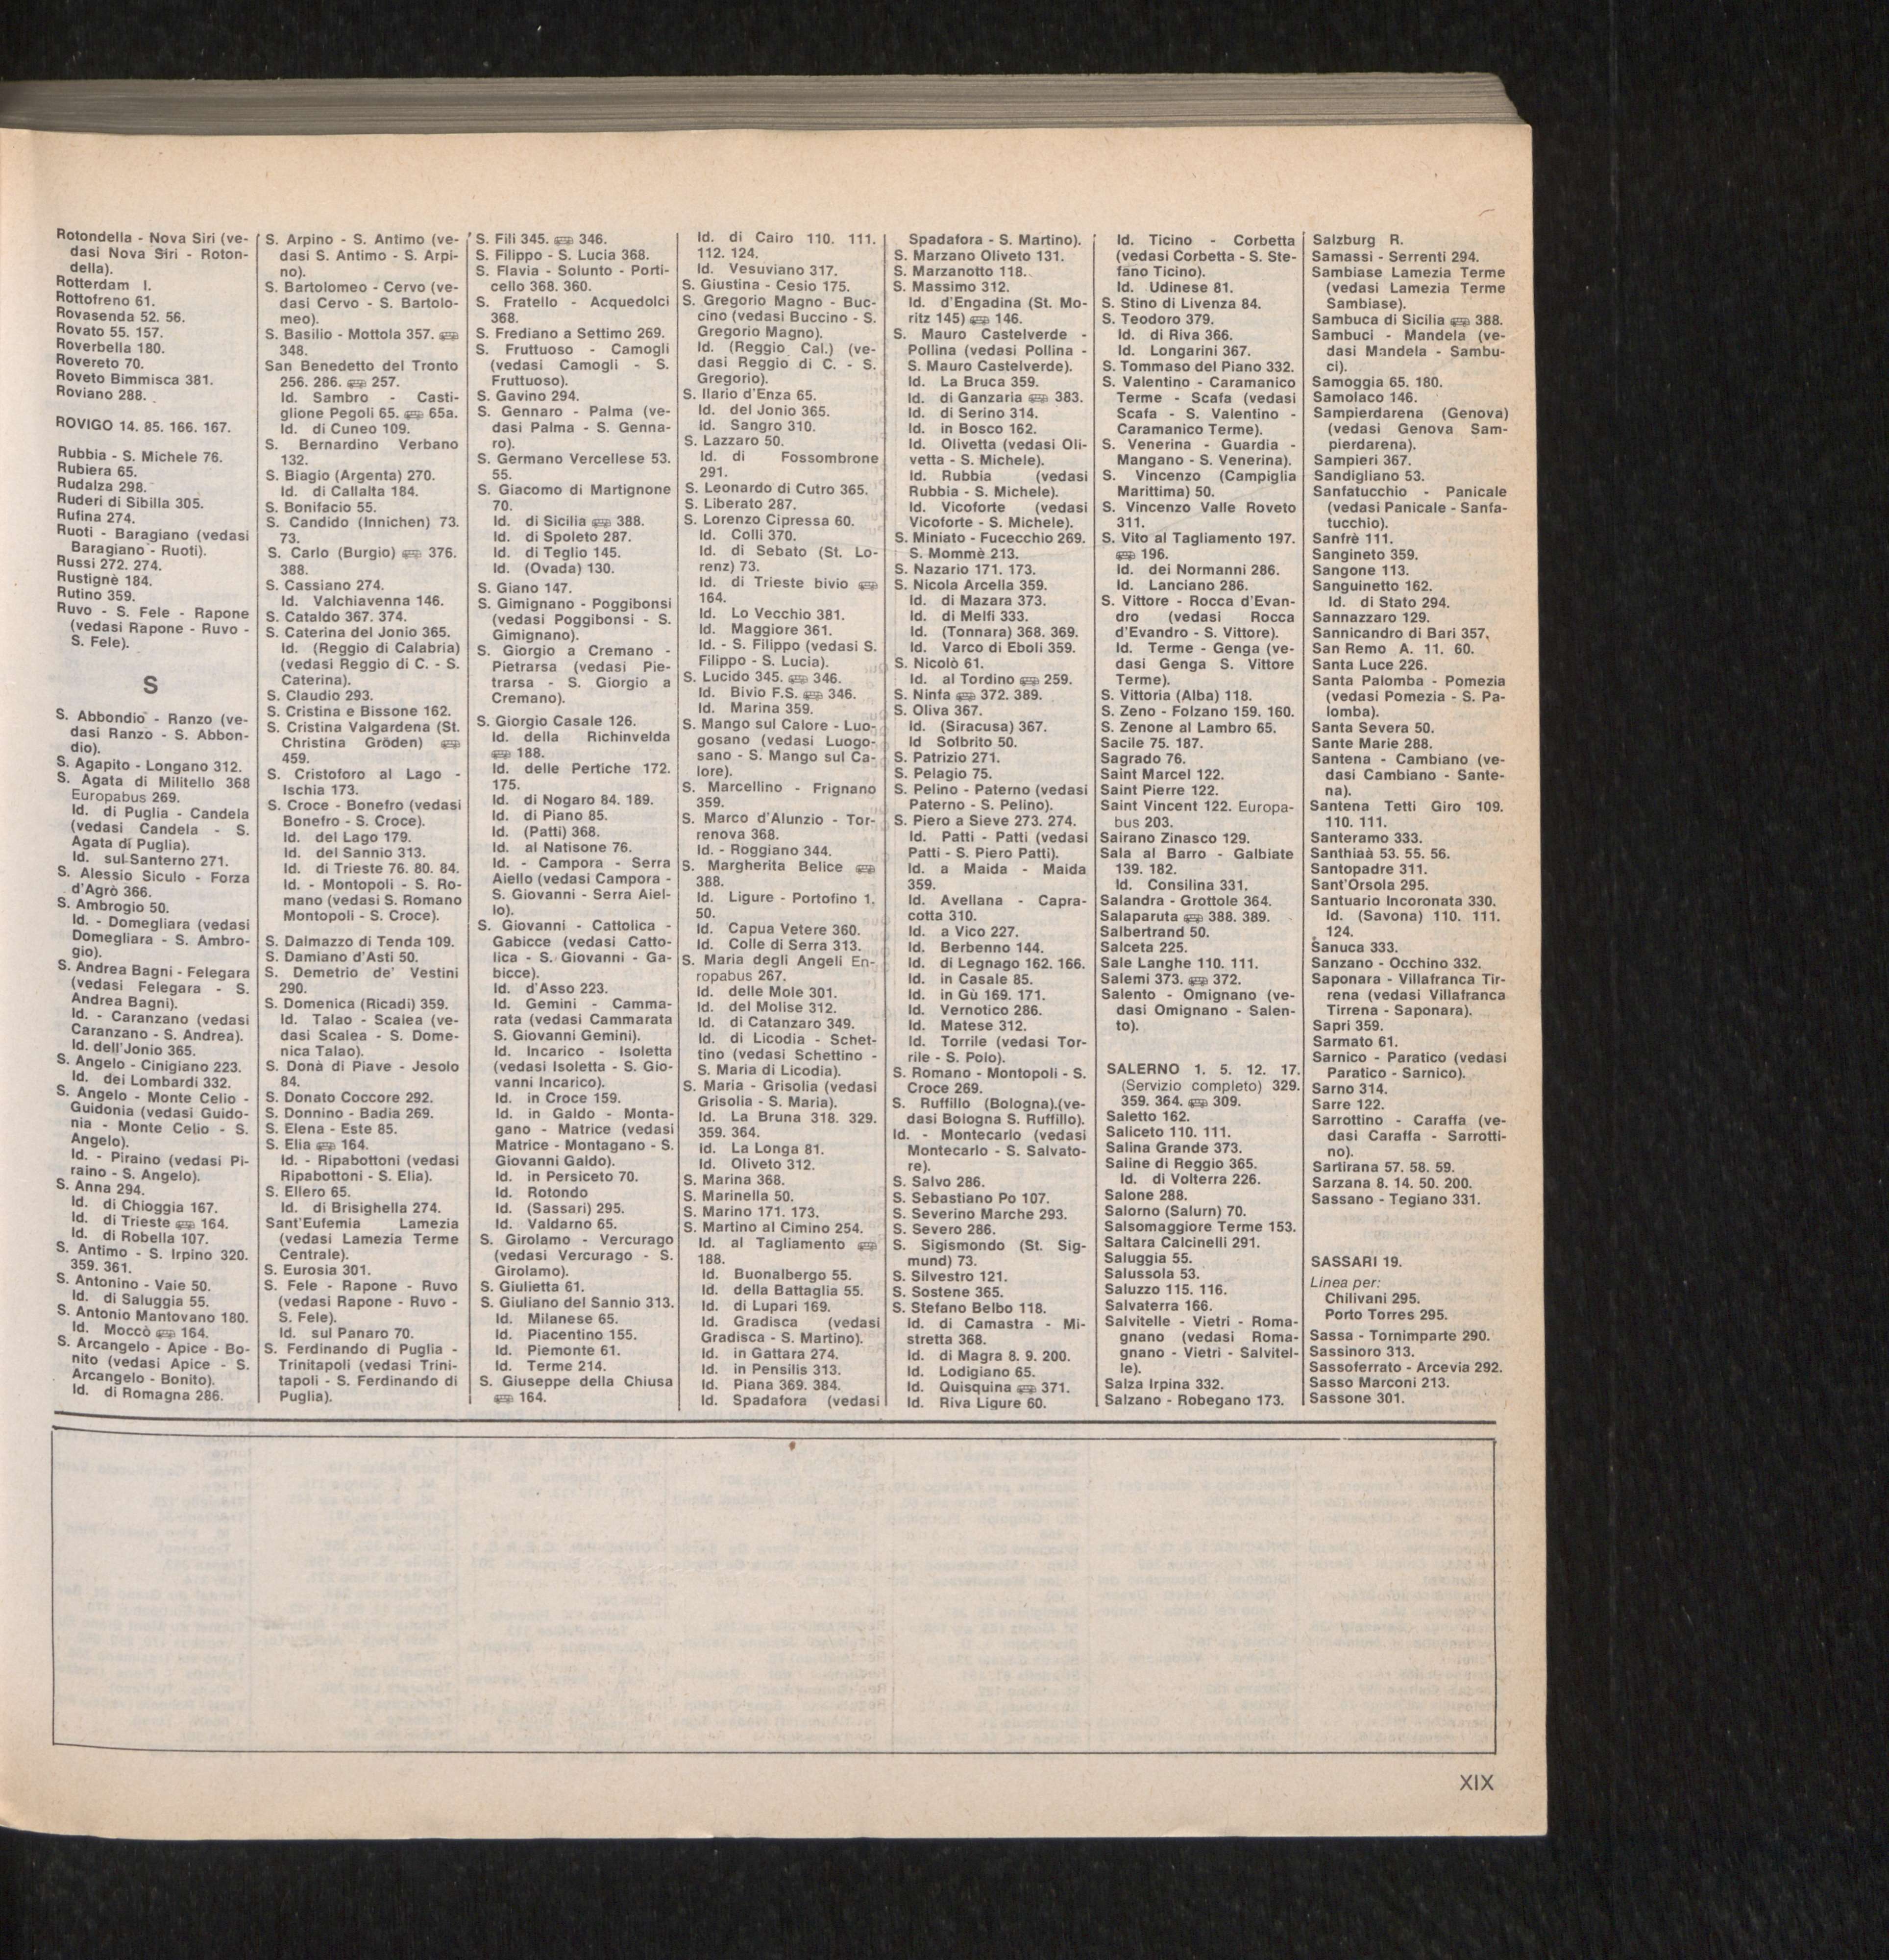 Rotondella - Nova Siri (ve-
dasi Nova Siri - Roton-
della).
Rotterdam I.
Rottofreno 61.
Rovasenda 52. 56.
Rovato 55. 157.
Roverbella 180.
Rovereto 70.
Roveto Bimmisca 381.
Roviano 288.
ROVIGO 14. 85. 166. 167.
Rubbia - S. Michele 76.
Rubiera 65.
Rudalza 298.
Ruderi di Sibilla 305.
Rufina 274.
Ruoti - Baragiano (vedasi
Baragiano - Ruoti).
Russi 272. 274.
Rustignè 184.
Rutino 359.
Ruvo - S. Fele - Rapone
(vedasi Rapone - Ruvo -
S. Fele).
S
S. Abbondio - Ranzo (ve-
dasi Ranzo - S. Abbon-
dio).
S. Agapito - Longano 312.
S. Agata di Militello 368
Europabus 269.
Id. di Puglia - Candela
(vedasi Candela - S.
Agata di Puglia).
Id. sul Santerno 271.
S. Alessio Siculo - Forza
d'Agrò 366.
S. Ambrogio 50.
Id. - Domegliara (vedasi
Domegliara - S. Ambro-
gio).
S. Andrea Bagni - Felegara
(vedasi Felegara - S.
Andrea Bagni).
Id. - Caranzano (vedasi
Caranzano - S. Andrea).
Id. dell'Jonio 365.
S. Angelo - Cinigiano 223.
Id. dei Lombardi 332.
S. Angelo - Monte Celio -
Guidonia (vedasi Guido-
nia - Monte Celio - S.
Angelo).
Id. - Piraino (vedasi Pi-
raino - S. Angelo).
S. Anna 294.
Id. di Chioggia 167.
Id. di Trieste 164.
Id. di Robella 107.
S. Antimo - S. Irpino 320.
359. 361.
S. Antonino - Vaie 50.
Id. di Saluggia 55.
S. Antonio Mantovano 180.
Id. Moccò 164.
S. Arcangelo - Apice - Bo-
nito (vedasi Apice - S.
Arcangelo - Bonito).
Id. di Romagna 286.
S. Arpino - S. Antimo (ve-
dasi S. Antimo - S. Arpi-
no).
S. Bartolomeo - Cervo (ve-
dasi Cervo - S. Bartolo-
meo).
S. Basilio - Mottola 357.
348.
San Benedetto del Tronto
256. 286. 257.
Id. Sambro - Casti-
glione Pegoli 65. 65a.
Id. di Cuneo 109.
S. Bernardino Verbano
132.
S. Biagio (Argenta) 270.
Id. di Callalta 184.
S. Bonifacio 55.
S. Candido (Innichen) 73.
73.
S. Carlo (Burgio) 376.
388.
S. Cassiano 274.
Id. Valchiavenna 146.
S. Cataldo 367. 374.
S. Caterina del Jonio 365.
Id. (Reggio di Calabria)
(vedasi Reggio di C. - S.
Caterina).
S. Claudio 293.
S. Cristina e Bissone 162.
S. Cristina Valgardena (St.
Christina Gröden)
459.
S. Cristoforo al Lago -
Ischia 173.
S. Croce - Bonefro (vedasi
Bonefro - S. Croce).
Id. del Lago 179.
Id. del Sannio 313.
Id. di Trieste 76. 80. 84.
Id. - Montopoli - S. Ro-
mano (vedasi S. Romano
Montopoli - S. Croce).
S. Dalmazzo di Tenda 109.
S. Damiano d'Asti 50.
S. Demetrio de' Vestini
290.
S. Domenica (Ricadi) 359.
Id. Talao - Scalea (ve-
dasi Scalea - S. Dome-
nica Talao).
S. Donà di Piave - Jesolo
84.
S. Donato Coccore 292.
S. Donnino - Badia 269.
S. Elena - Este 85.
S. Elia 164.
Id. - Ripabottoni (vedasi
Ripabottoni - S. Elia).
S. Ellero 65.
Id. di Brisighella 274.
Sant'Eufemia Lamezia
(vedasi Lamezia Terme
Centrale).
S. Eurosia 301.
S. Fele - Rapone - Ruvo
(vedasi Rapone - Ruvo -
S. Fele).
Id. sul Panaro 70.
S. Ferdinando di Puglia -
Trinitapoli (vedasi Trini-
tapoli - S. Ferdinando di
Puglia).
S. Fili 345. 346.
S. Filippo - S. Lucia 368.
S. Flavia - Solunto - Porti-
cello 368. 360.
S. Fratello - Acquedolci
368.
S. Frediano a Settimo 269.
S. Fruttuoso - Camogli
(vedasi Camogli - S.
Fruttuoso).
S. Gavino 294.
S. Gennaro - Palma (ve-
dasi Palma - S. Genna-
ro).
S. Germano Vercellese 53.
55.
S. Giacomo di Martignone
70.
Id. di Sicilia 388.
Id. di Spoleto 287.
Id. di Teglio 145.
Id. (Ovada) 130.
S. Giano 147.
S. Gimignano - Poggibonsi
(vedasi Poggibonsi - S.
Gimignano).
S. Giorgio a Cremano -
Pietrarsa (vedasi Pie-
trarsa - S. Giorgio a
Cremano).
S. Giorgio Casale 126.
Id. della Richinvelda
188.
Id. delle Pertiche 172.
175.
Id. di Nogaro 84. 189.
Id. di Piano 85.
Id. (Patti) 368.
Id. al Natisone 76.
Id. - Campora - Serra
Aiello (vedasi Campora -
S. Giovanni - Serra Aiel-
lo).
S. Giovanni - Cattolica -
Gabicce (vedasi Catto-
lica - S. Giovanni - Ga-
bicce).
Id. d'Asso 223.
Id. Gemini - Camma-
rata (vedasi Cammarata
S. Giovanni Gemini).
Id. Incarico - Isoletta
(vedasi Isoletta - S. Gio-
vanni Incarico).
Id. in Croce 159.
Id. in Galdo - Monta-
gano - Matrice (vedasi
Matrice - Montagano - S.
Giovanni Galdo).
Id. in Persiceto 70.
Id. Rotondo
Id. (Sassari) 295.
Id. Valdarno 65.
S. Girolamo - Vercurago
(vedasi Vercurago - S.
Girolamo).
S. Giulietta 61.
S. Giuliano del Sannio 313.
Id. Milanese 65.
Id. Piacentino 155.
Id. Piemonte 61.
Id. Terme 214.
S. Giuseppe della Chiusa
164.
Id. di Cairo 110. 111.
112. 124.
Id. Vesuviano 317.
S. Giustina - Cesio 175.
S. Gregorio Magno - Buc-
cino (vedasi Buccino - S.
Gregorio Magno).
Id. (Reggio Cal.) (ve-
dasi Reggio di C. - S.
Gregorio).
S. Ilario d'Enza 65.
Id. del Jonio 365.
Id. Sangro 310.
S. Lazzaro 50.
Id. di Fossombrone
291.
S. Leonardo di Cutro 365.
S. Liberato 287.
S. Lorenzo Cipressa 60.
Id. Colli 370.
Id. di Sebato (St. Lo-
renz) 73.
Id. di Trieste bivio
164.
Id. Lo Vecchio 381.
Id. Maggiore 361.
Id. - S. Filippo (vedasi S.
Filippo - S. Lucia).
S. Lucido 345. 346.
Id. Bivio F.S. 346.
Id. Marina 359.
S. Mango sul Calore - Luo-
gosano (vedasi Luogo-
sano - S. Mango sul Ca-
lore).
S. Marcellino - Frignano
359.
S. Marco d'Alunzio - Tor-
renova 368.
Id. - Roggiano 344.
S. Margherita Belice
388.
Id. Ligure - Portofino 1.
50.
Id. Capua Vetere 360.
Id. Colle di Serra 313.
S. Maria degli Angeli En-
ropabus 267.
Id. delle Mole 301.
Id. del Molise 312.
Id. di Catanzaro 349.
Id. di Licodia - Schet-
tino (vedasi Schettino -
S. Maria di Licodia).
S. Maria - Grisolia (vedasi
Grisolia - S. Maria).
Id. La Bruna 318. 329.
359. 364.
Id. La Longa 81.
Id. Oliveto 312.
S. Marina 368.
S. Marinella 50.
S. Marino 171. 173.
S. Martino al Cimino 254.
Id. al Tagliamento
188.
Id. Buonalbergo 55.
Id. della Battaglia 55.
Id. di Lupari 169.
Id. Gradisca (vedasi
Gradisca - S. Martino).
Id. in Gattara 274.
Id. in Pensilis 313.
Id. Piana 369. 384.
Id. Spadafora (vedasi
Spadafora - S. Martino).
S. Marzano Oliveto 131.
S. Marzanotto 118.
S. Massimo 312.
Id. d'Engadina (St. Mo-
ritz 145) 146.
S. Mauro Castelverde -
Pollina (vedasi Pollina -
S. Mauro Castelverde).
Id. La Bruca 359.
Id. di Ganzaria 383.
Id. di Serino 314.
Id. in Bosco 162.
Id. Olivetta (vedasi Oli-
vetta - S. Michele).
Id. Rubbia (vedasi
Rubbia - S. Michele).
Id. Vicoforte (vedasi
Vicoforte - S. Michele).
S. Miniato - Fucecchio 269.
S. Mommè 213.
S. Nazario 171. 173.
S. Nicola Arcella 359.
Id. di Mazara 373.
Id. di Melfi 333.
Id. (Tonnara) 368. 369.
Id. Varco di Eboli 359.
S. Nicolò 61.
Id. al Tordino 259.
S. Ninfa 372. 389.
S. Oliva 367.
Id. (Siracusa) 367.
Id Solbrito 50.
S. Patrizio 271.
S. Pelagio 75.
S. Pelino - Paterno (vedasi
Paterno - S. Pelino).
S. Piero a Sieve 273. 274.
Id. Patti - Patti (vedasi
Patti - S. Piero Patti).
Id. a Maida - Maida
359.
Id. Avellana - Capra-
cotta 310.
Id. a Vico 227.
Id. Berbenno 144.
Id. di Legnago 162. 166.
Id. in Casale 85.
Id. in Gù 169. 171.
Id. Vernotico 286.
Id. Matese 312.
Id. Torrile (vedasi Tor-
rile - S. Polo).
S. Romano - Montopoli - S.
Croce 269.
S. Ruffillo (Bologna).(ve-
dasi Bologna S. Ruffillo).
Id. - Montecarlo (vedasi
Montecarlo - S. Salvato-
re).
S. Salvo 286.
S. Sebastiano Po 107.
S. Severino Marche 293.
S. Severo 286.
S. Sigismondo (St. Sig-
mund) 73.
S. Silvestro 121.
S. Sostene 365.
S. Stefano Belbo 118.
Id. di Camastra - Mi-
stretta 368.
Id. di Magra 8. 9. 200.
Id. Lodigiano 65.
Id. Quisquina 371.
Id. Riva Ligure 60.
Id. Ticino - Corbetta
(vedasi Corbetta - S. Ste-
fano Ticino).
Id. Udinese 81.
S. Stino di Livenza 84.
S. Teodoro 379.
Id. di Riva 366.
Id. Longarini 367.
S. Tommaso del Piano 332.
S. Valentino - Caramanico
Terme - Scafa (vedasi
Scafa - S. Valentino -
Caramanico Terme).
S. Venerina - Guardia -
Mangano - S. Venerina).
S. Vincenzo (Campiglia
Marittima) 50.
S. Vincenzo Valle Roveto
311.
S. Vito al Tagliamento 197.
196.
Id. dei Normanni 286.
Id. Lanciano 286.
S. Vittore - Rocca d'Evan-
dro (vedasi Rocca
d'Evandro - S. Vittore).
Id. Terme - Genga (ve-
dasi Genga S. Vittore
Terme).
S. Vittoria (Alba) 118.
S. Zeno - Folzano 159. 160.
S. Zenone al Lambro 65.
Sacile 75. 187.
Sagrado 76.
Saint Marcel 122.
Saint Pierre 122.
Saint Vincent 122. Europa-
bus 203.
Sairano Zinasco 129.
Sala al Barro - Galbiate
139. 182.
Id. Consilina 331.
Salandra - Grottole 364.
Salaparuta 388. 389.
Salbertrand 50.
Salceta 225.
Sale Langhe 110. 111.
Salemi 373. 372.
Salento - Omignano (ve-
dasi Omignano - Salen-
to).
SALERNO 1. 5. 12. 17.
(Servizio completo) 329.
359. 364. 309.
Saletto 162.
Saliceto 110. 111.
Salina Grande 373.
Saline di Reggio 365.
Id. di Volterra 226.
Salone 288.
Salorno (Salurn) 70.
Salsomaggiore Terme 153.
Saltara Calcinelli 291.
Saluggia 55.
Salussola 53.
Saluzzo 115. 116.
Salvaterra 166.
Salvitelle - Vietri - Roma-
gnano (vedasi Roma-
gnano - Vietri - Salvitel-
le).
Salza Irpina 332.
Salzano - Robegano 173.
Salzburg R.
Samassi - Serrenti 294.
Sambiase Lamezia Terme
(vedasi Lamezia Terme
Sambiase).
Sambuca di Sicilia 388.
Sambuci - Mandela (ve-
dasi Mandela - Sambu-
ci).
Samoggia 65. 180.
Samolaco 146.
Sampierdarena (Genova)
(vedasi Genova Sam-
pierdarena).
Sampieri 367.
Sandigliano 53.
Sanfatucchio - Panicale
(vedasi Panicale - Sanfa-
tucchio).
Sanfrè 111.
Sangineto 359.
Sangone 113.
Sanguinetto 162.
Id. di Stato 294.
Sannazzaro 129.
Sannicandro di Bari 357.
San Remo A. 11. 60.
Santa Luce 226.
Santa Palomba - Pomezia
(vedasi Pomezia - S. Pa-
lomba).
Santa Severa 50.
Sante Marie 288.
Santena - Cambiano (ve-
dasi Cambiano - Sante-
na).
Santena Tetti Giro 109.
110. 111.
Santeramo 333.
Santhiaà 53. 55. 56.
Santopadre 311.
Sant'Orsola 295.
Santuario Incoronata 330.
Id. (Savona) 110. 111.
124.
Sanuca 333.
Sanzano - Occhino 332.
Saponara - Villafranca Tir-
rena (vedasi Villafranca
Tirrena - Saponara).
Sapri 359.
Sarmato 61.
Sarnico - Paratico (vedasi
Paratico - Sarnico).
Sarno 314.
Sarre 122.
Sarrottino - Caraffa (ve-
dasi Caraffa - Sarrotti-
no).
Sartirana 57. 58. 59.
Sarzana 8. 14. 50. 200.
Sassano - Tegiano 331.
SASSARI 19.
Linea per:
Chilivani 295.
Porto Torres 295.
Sassa - Tornimparte 290.
Sassinoro 313.
Sassoferrato - Arcevia 292.
Sasso Marconi 213.
Sassone 301.
XIX